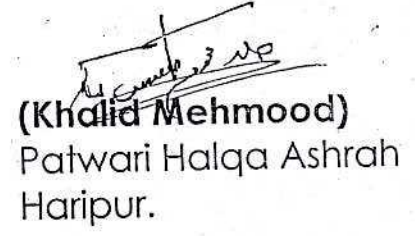 (Khalid Mehmood)
Patwari Halqa Ashrah
Haripur.